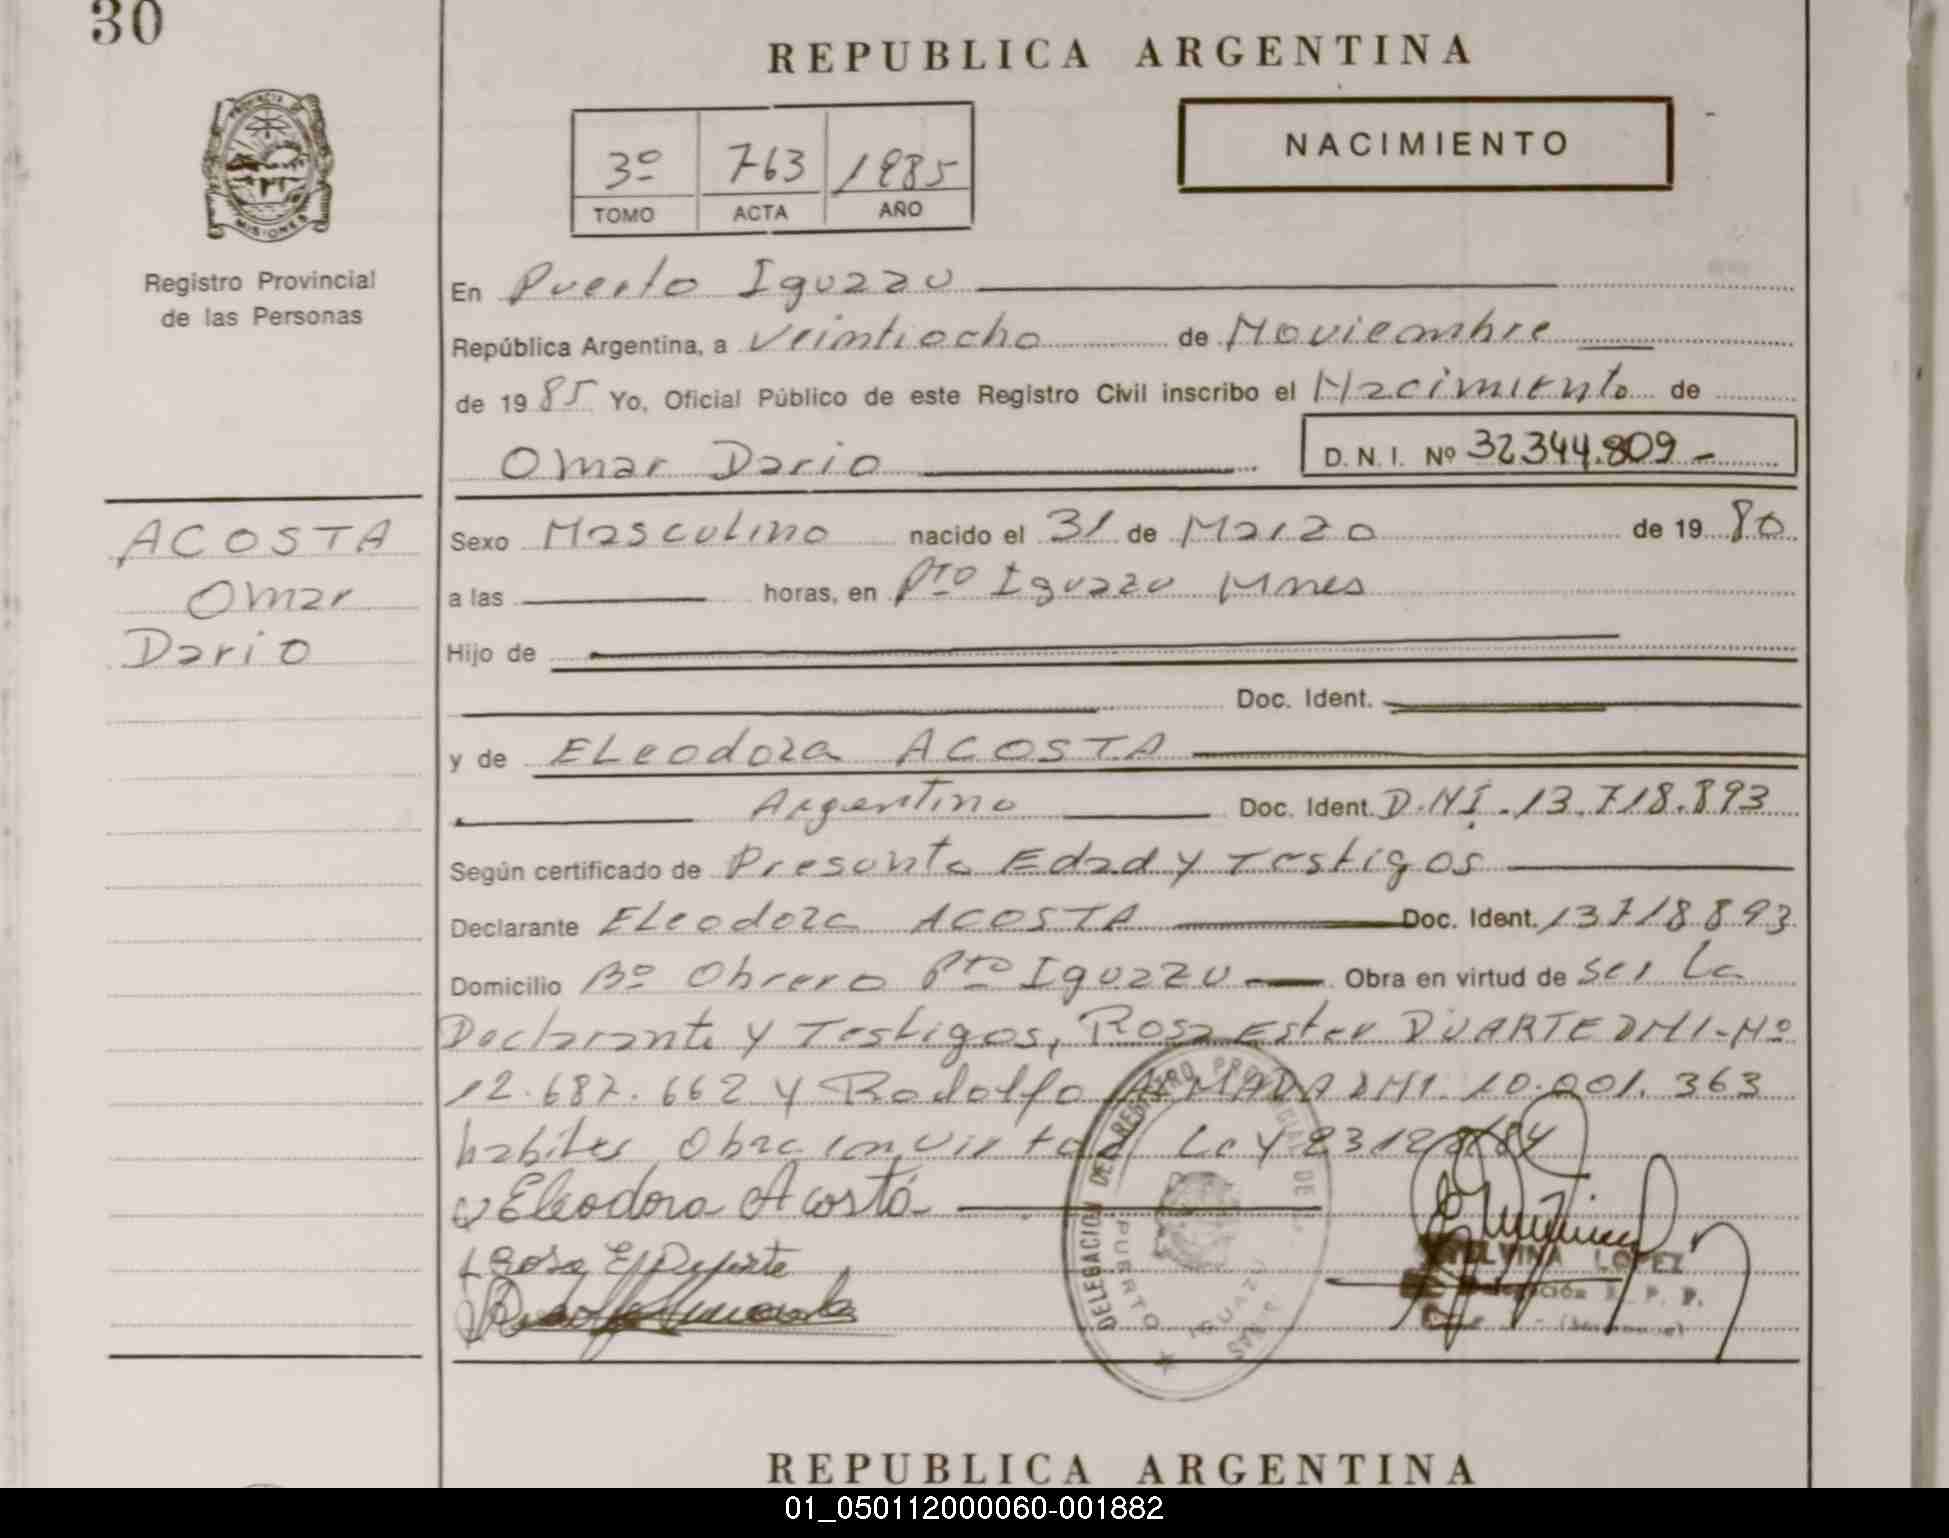 30
REPUBLICA ARGENTINA
PROVINCIA DE
MISIONES
3º 763 1985
TOMO ACTA AÑO
NACIMIENTO
Registro Provincial
de las Personas
En Puerto Iguazu
República Argentina, a Veintiocho de Noviembre
de 1985 Yo, Oficial Público de este Registro Civil inscribo el Nacimiento de
Omar Dario D. N. I. Nº 32.344.809 -
ACOSTA
Omar
Dario
Sexo Masculino nacido el 31 de Marzo de 1980
a las horas, en Pto Iguazu Mnes
Hijo de
Doc. Ident.
y de ELeodora ACOSTA
Argentino Doc. Ident. D.NI. 13.718.893
Según certificado de Presunta Edad y Testigos
Declarante ELeodora ACOSTA Doc. Ident. 13718893
Domicilio Bº Obrero Pto Iguazu Obra en virtud de ser La
Declarante y Testigos, Rosa Ester DUARTE DNI-Nº
12.687.662 y Rodolfo DNI. 10.001.363
habiles Obra en virtud Ley
Eleodora Acosta
Rosa E Duarte
DELEGACION DEL REGISTRO PROVINCIAL DE
PUERTO IGUAZU
LOPEZ
REPUBLICA ARGENTINA
01_050112000060-001882